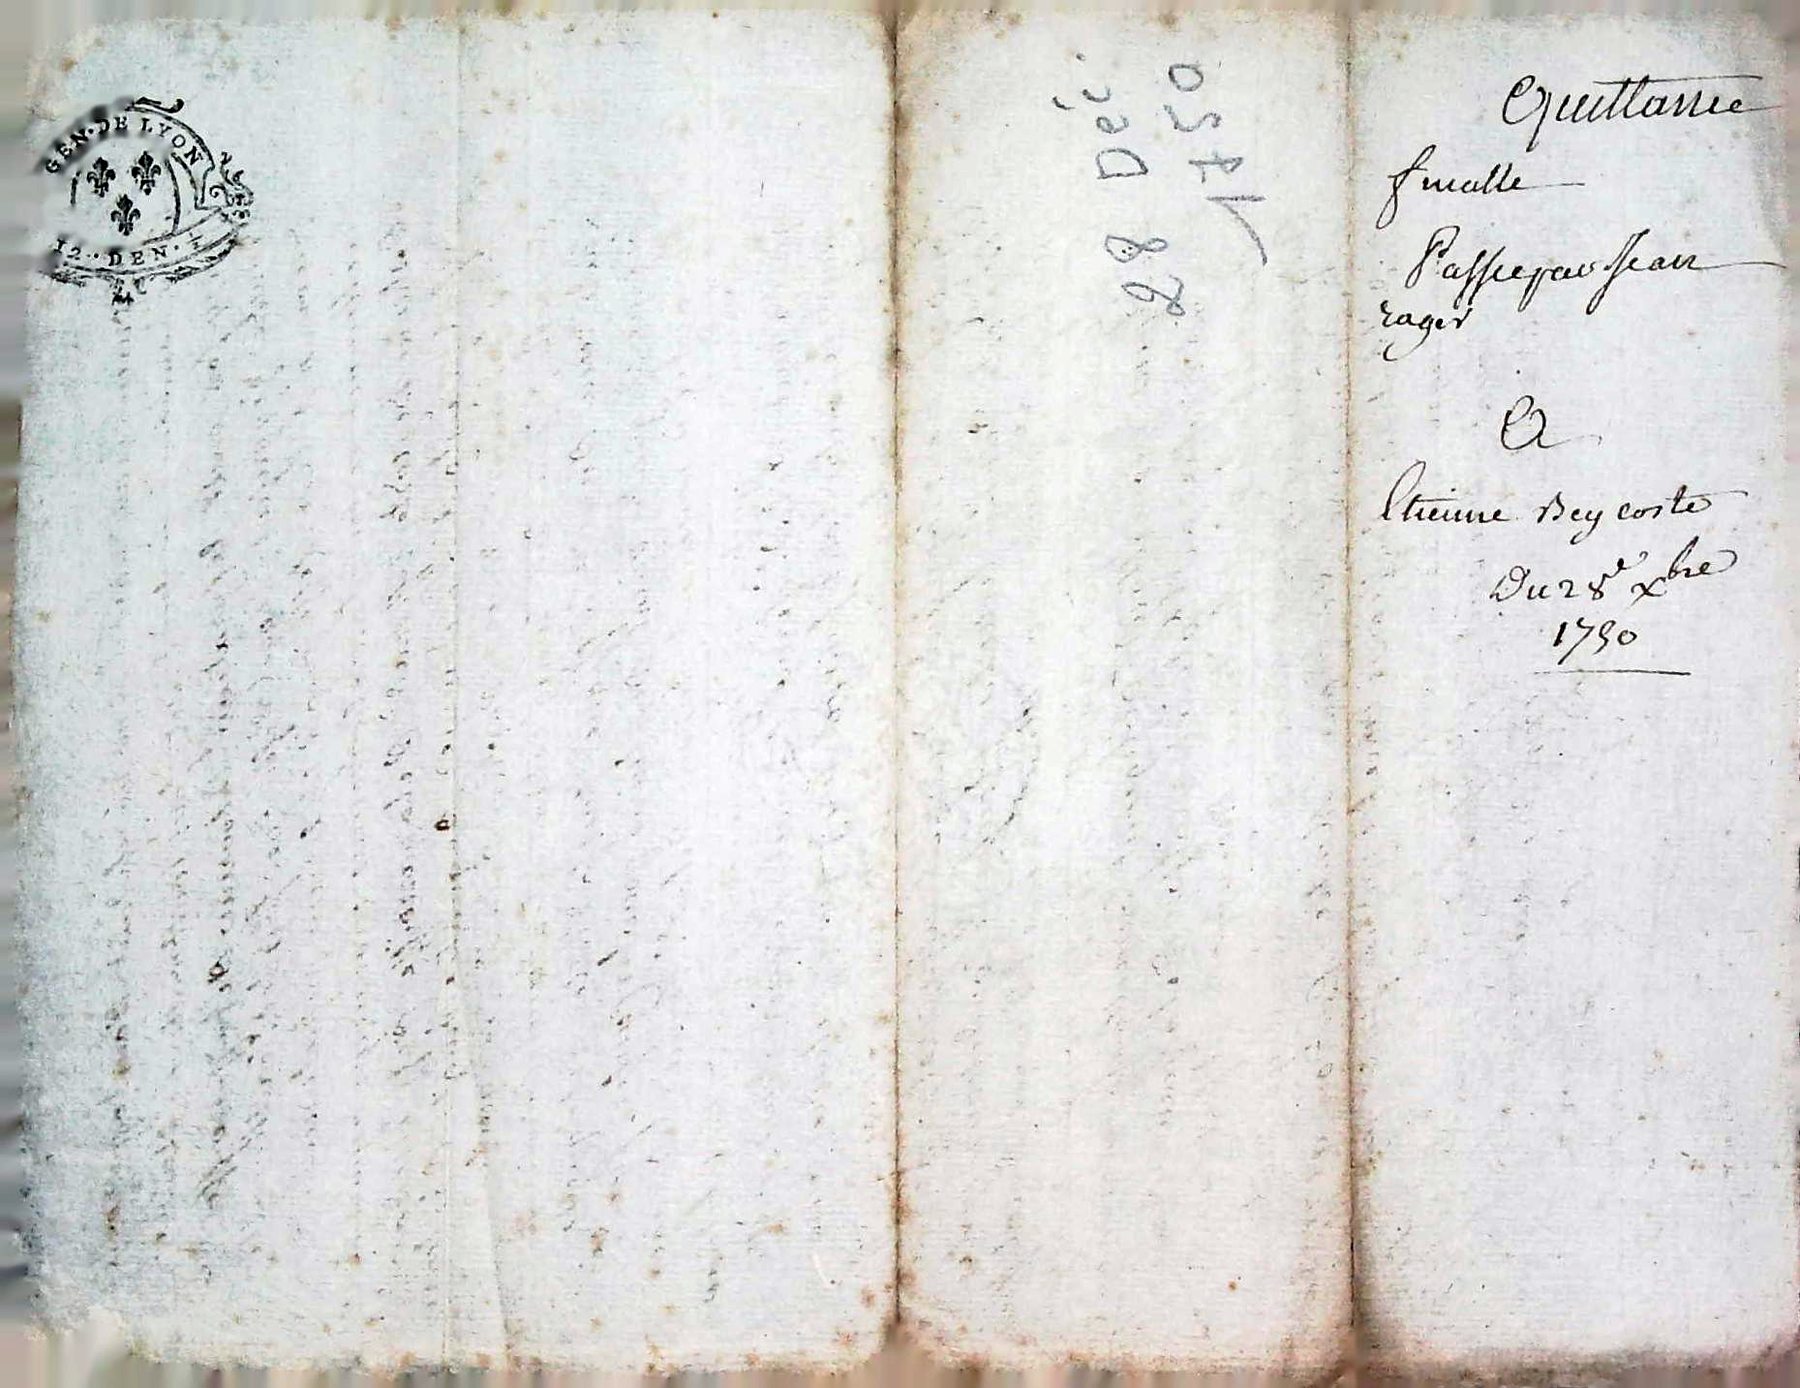 GEN. DE LYON
12. DEN.
28 Déc.
1750
Quittance
finalle
Passée par Jean
rager
A
Etienne Beycoste
Du 28e xbre
1750